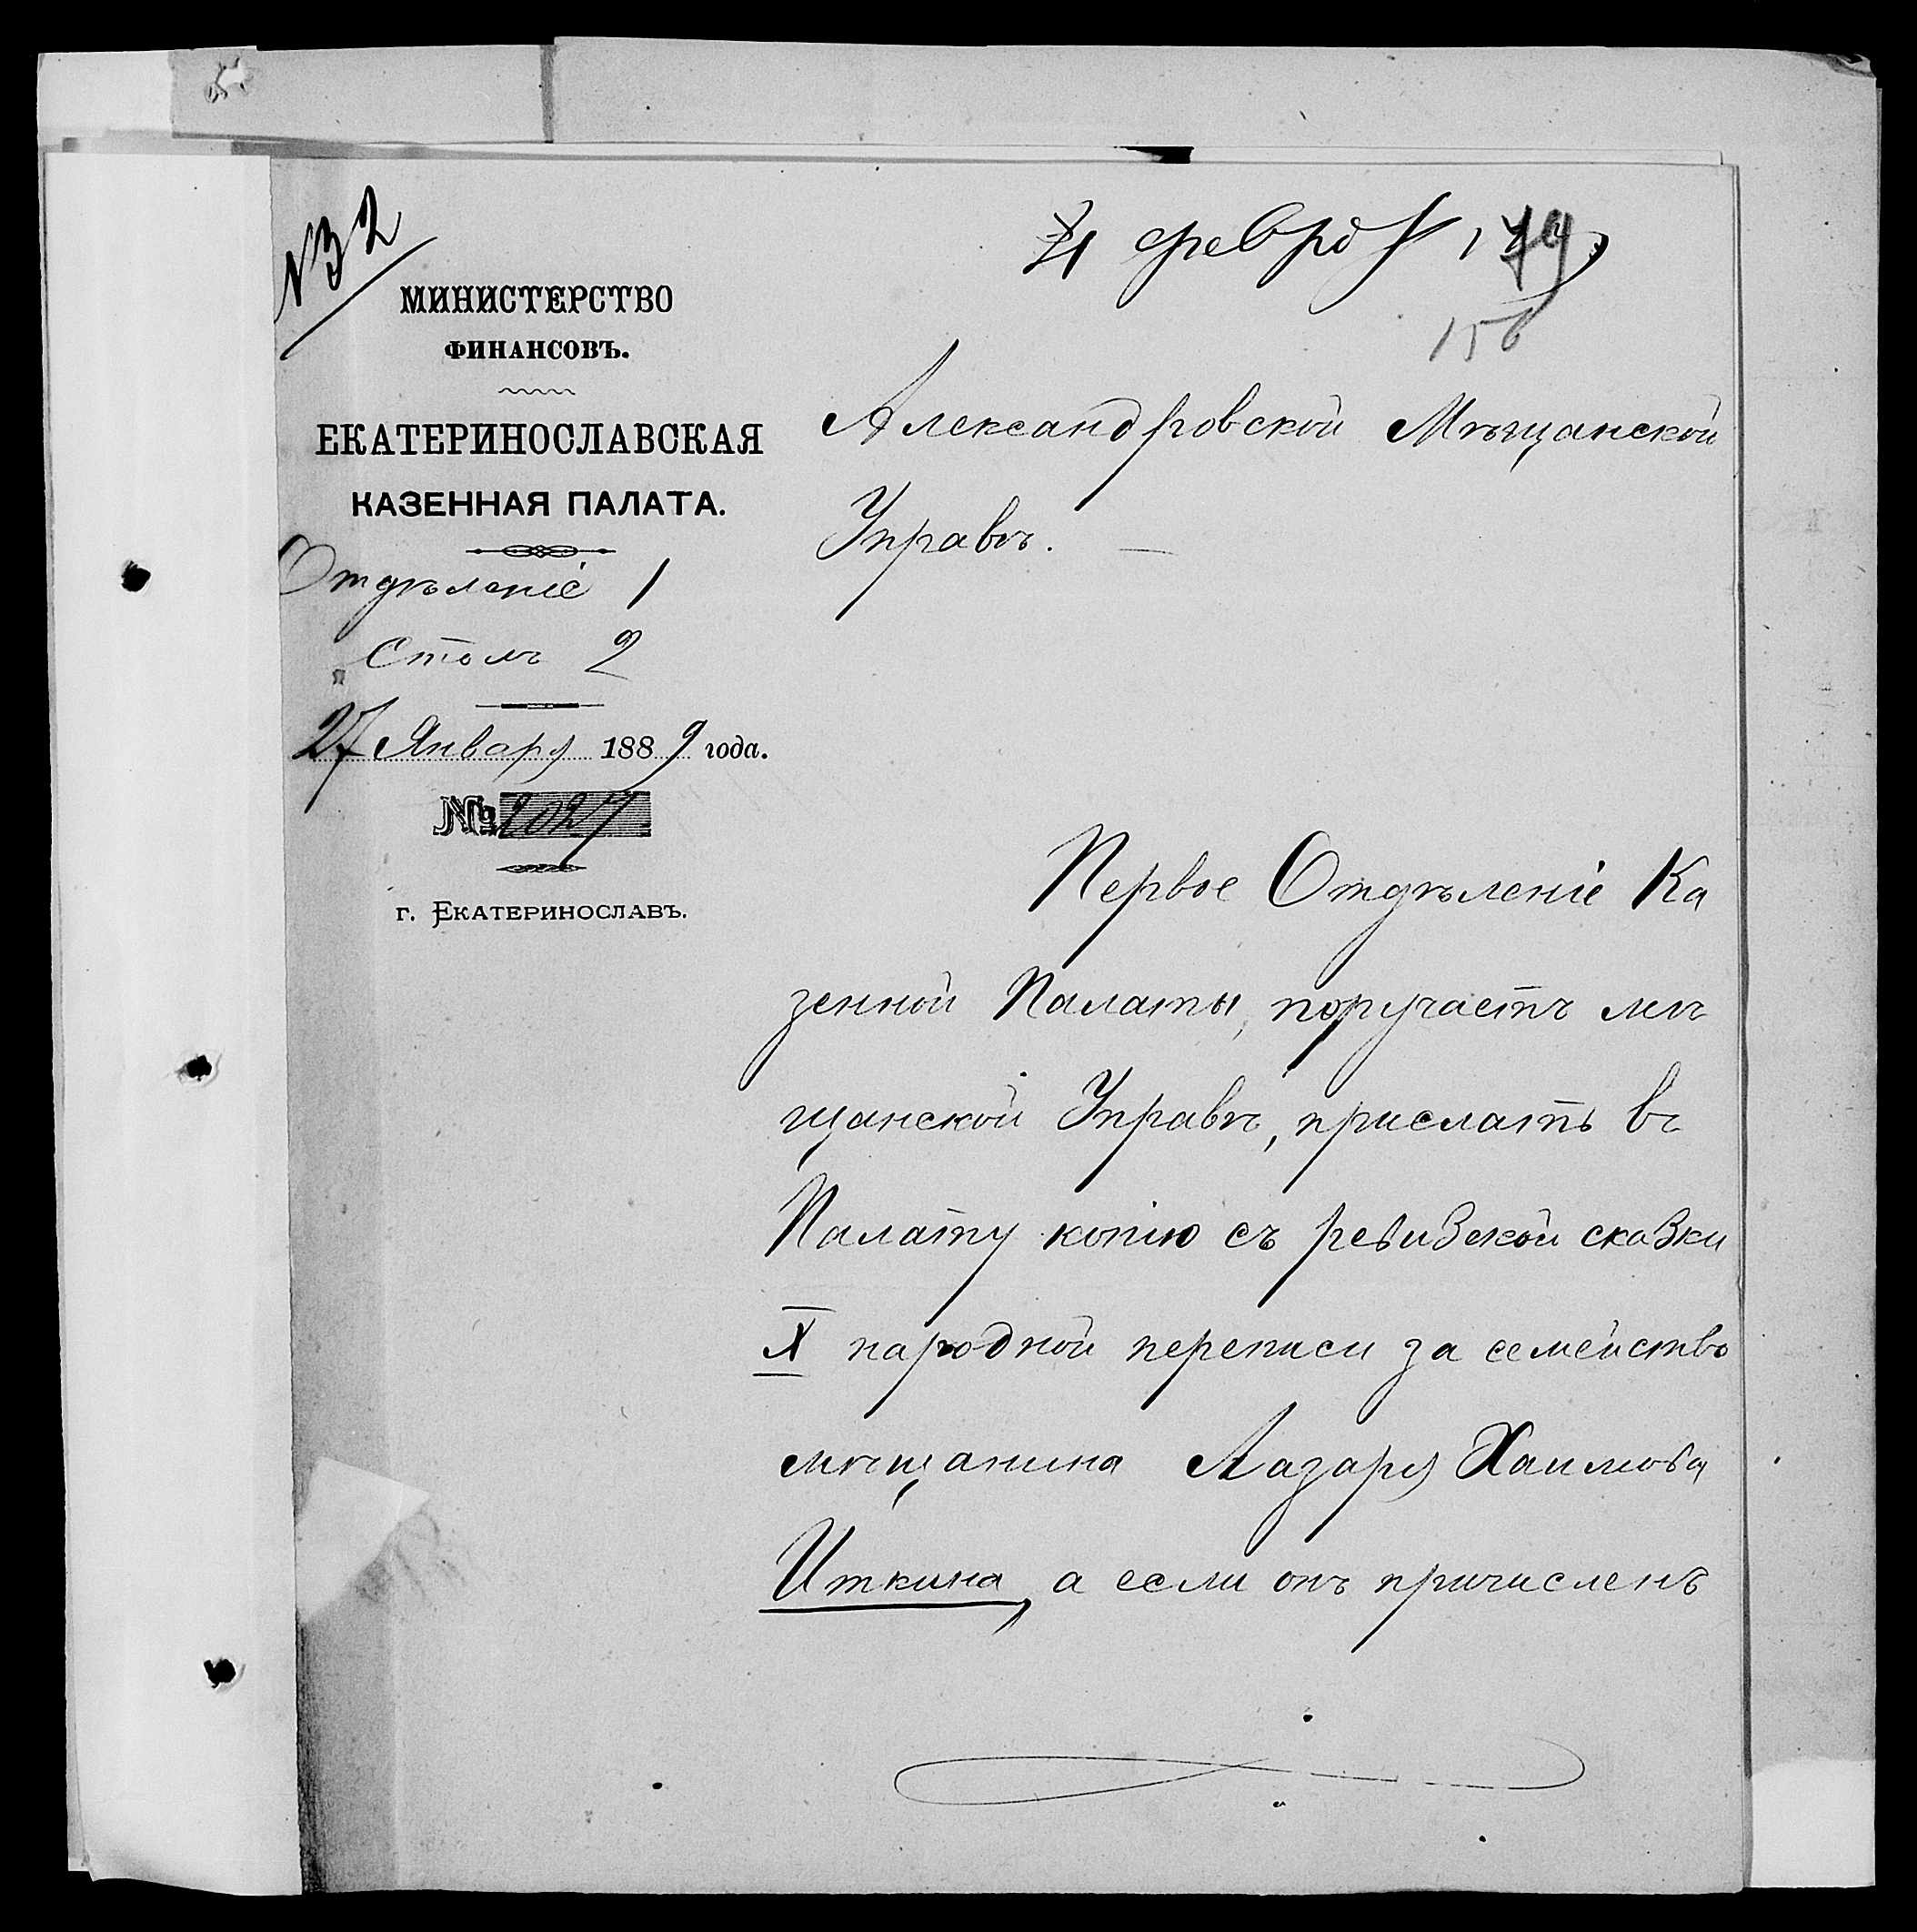 № 32
МИНИСТЕРСТВО
ФИНАНСОВЪ.
ЕКАТЕРИНОСЛАВСКАЯ
КАЗЕННАЯ ПАЛАТА.
Отдѣленіе 1
Столъ 2
27 Января 1889 года.
№ 2027
г. Екатеринославъ.
февр
156
Александровской Мѣщанской
Управѣ. —
Первое Отдѣленіе Ка
зенной Палаты, поручаетъ мѣ
щанской Управѣ, прислать въ
Палату копію съ ревизской сказки
X народной переписи за семейство
мѣщанина Лазаря Хаимова
Иткина, а если онъ причисленъ